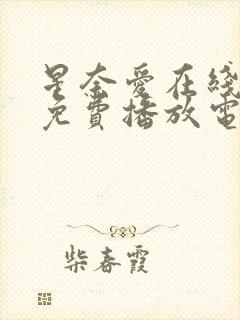 星奈愛在綫
免費播放電
柴春霞